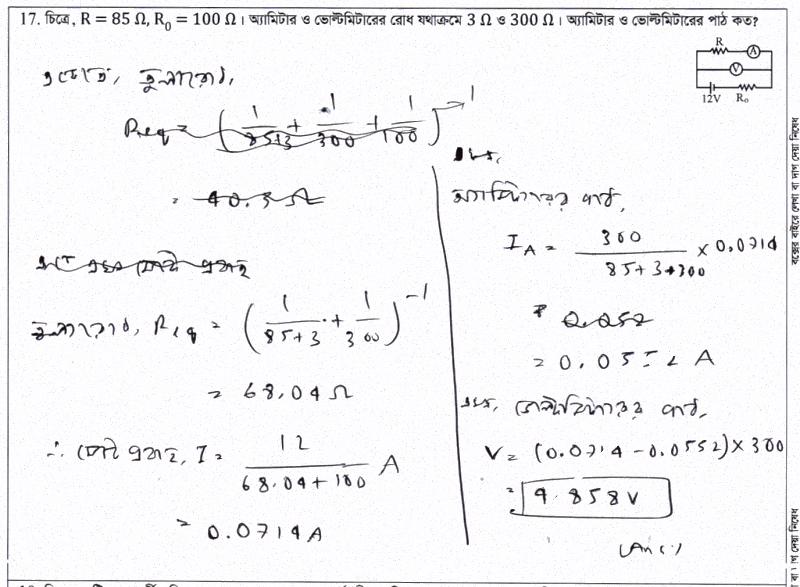 17. চিত্রে, R = 85 Ω, R₀ = 100 Ω। অ্যামিটার ও ভোল্টমিটারের রোধ যথাক্রমে 3 Ω ও 300 Ω। অ্যামিটার ও ভোল্টমিটারের পাঠ কত?
R
A
V
12V R₀
এক্ষেত্রে, তুল্যরোধ,
Req = (1/(85+3) + 1/300 + 1/100)⁻¹
= 40.5 Ω
তুল্যরোধ, Req = (1/(85+3) + 1/300)⁻¹
= 68.04 Ω
∴ মোট প্রবাহ, I = 12/(68.04+100) A
= 0.0714 A
এখন,
অ্যামিটারের পাঠ,
I_A = 300/(85+3+300) × 0.0714
= 0.052
= 0.0552 A
এখন, ভোল্টমিটারের পাঠ,
V = (0.0714 - 0.0552) × 300
= 4.858 V
(Ans:)
বক্সের বাইরে লেখা বা দাগ দেয়া নিষেধ
গ দেয়া নিষেধ